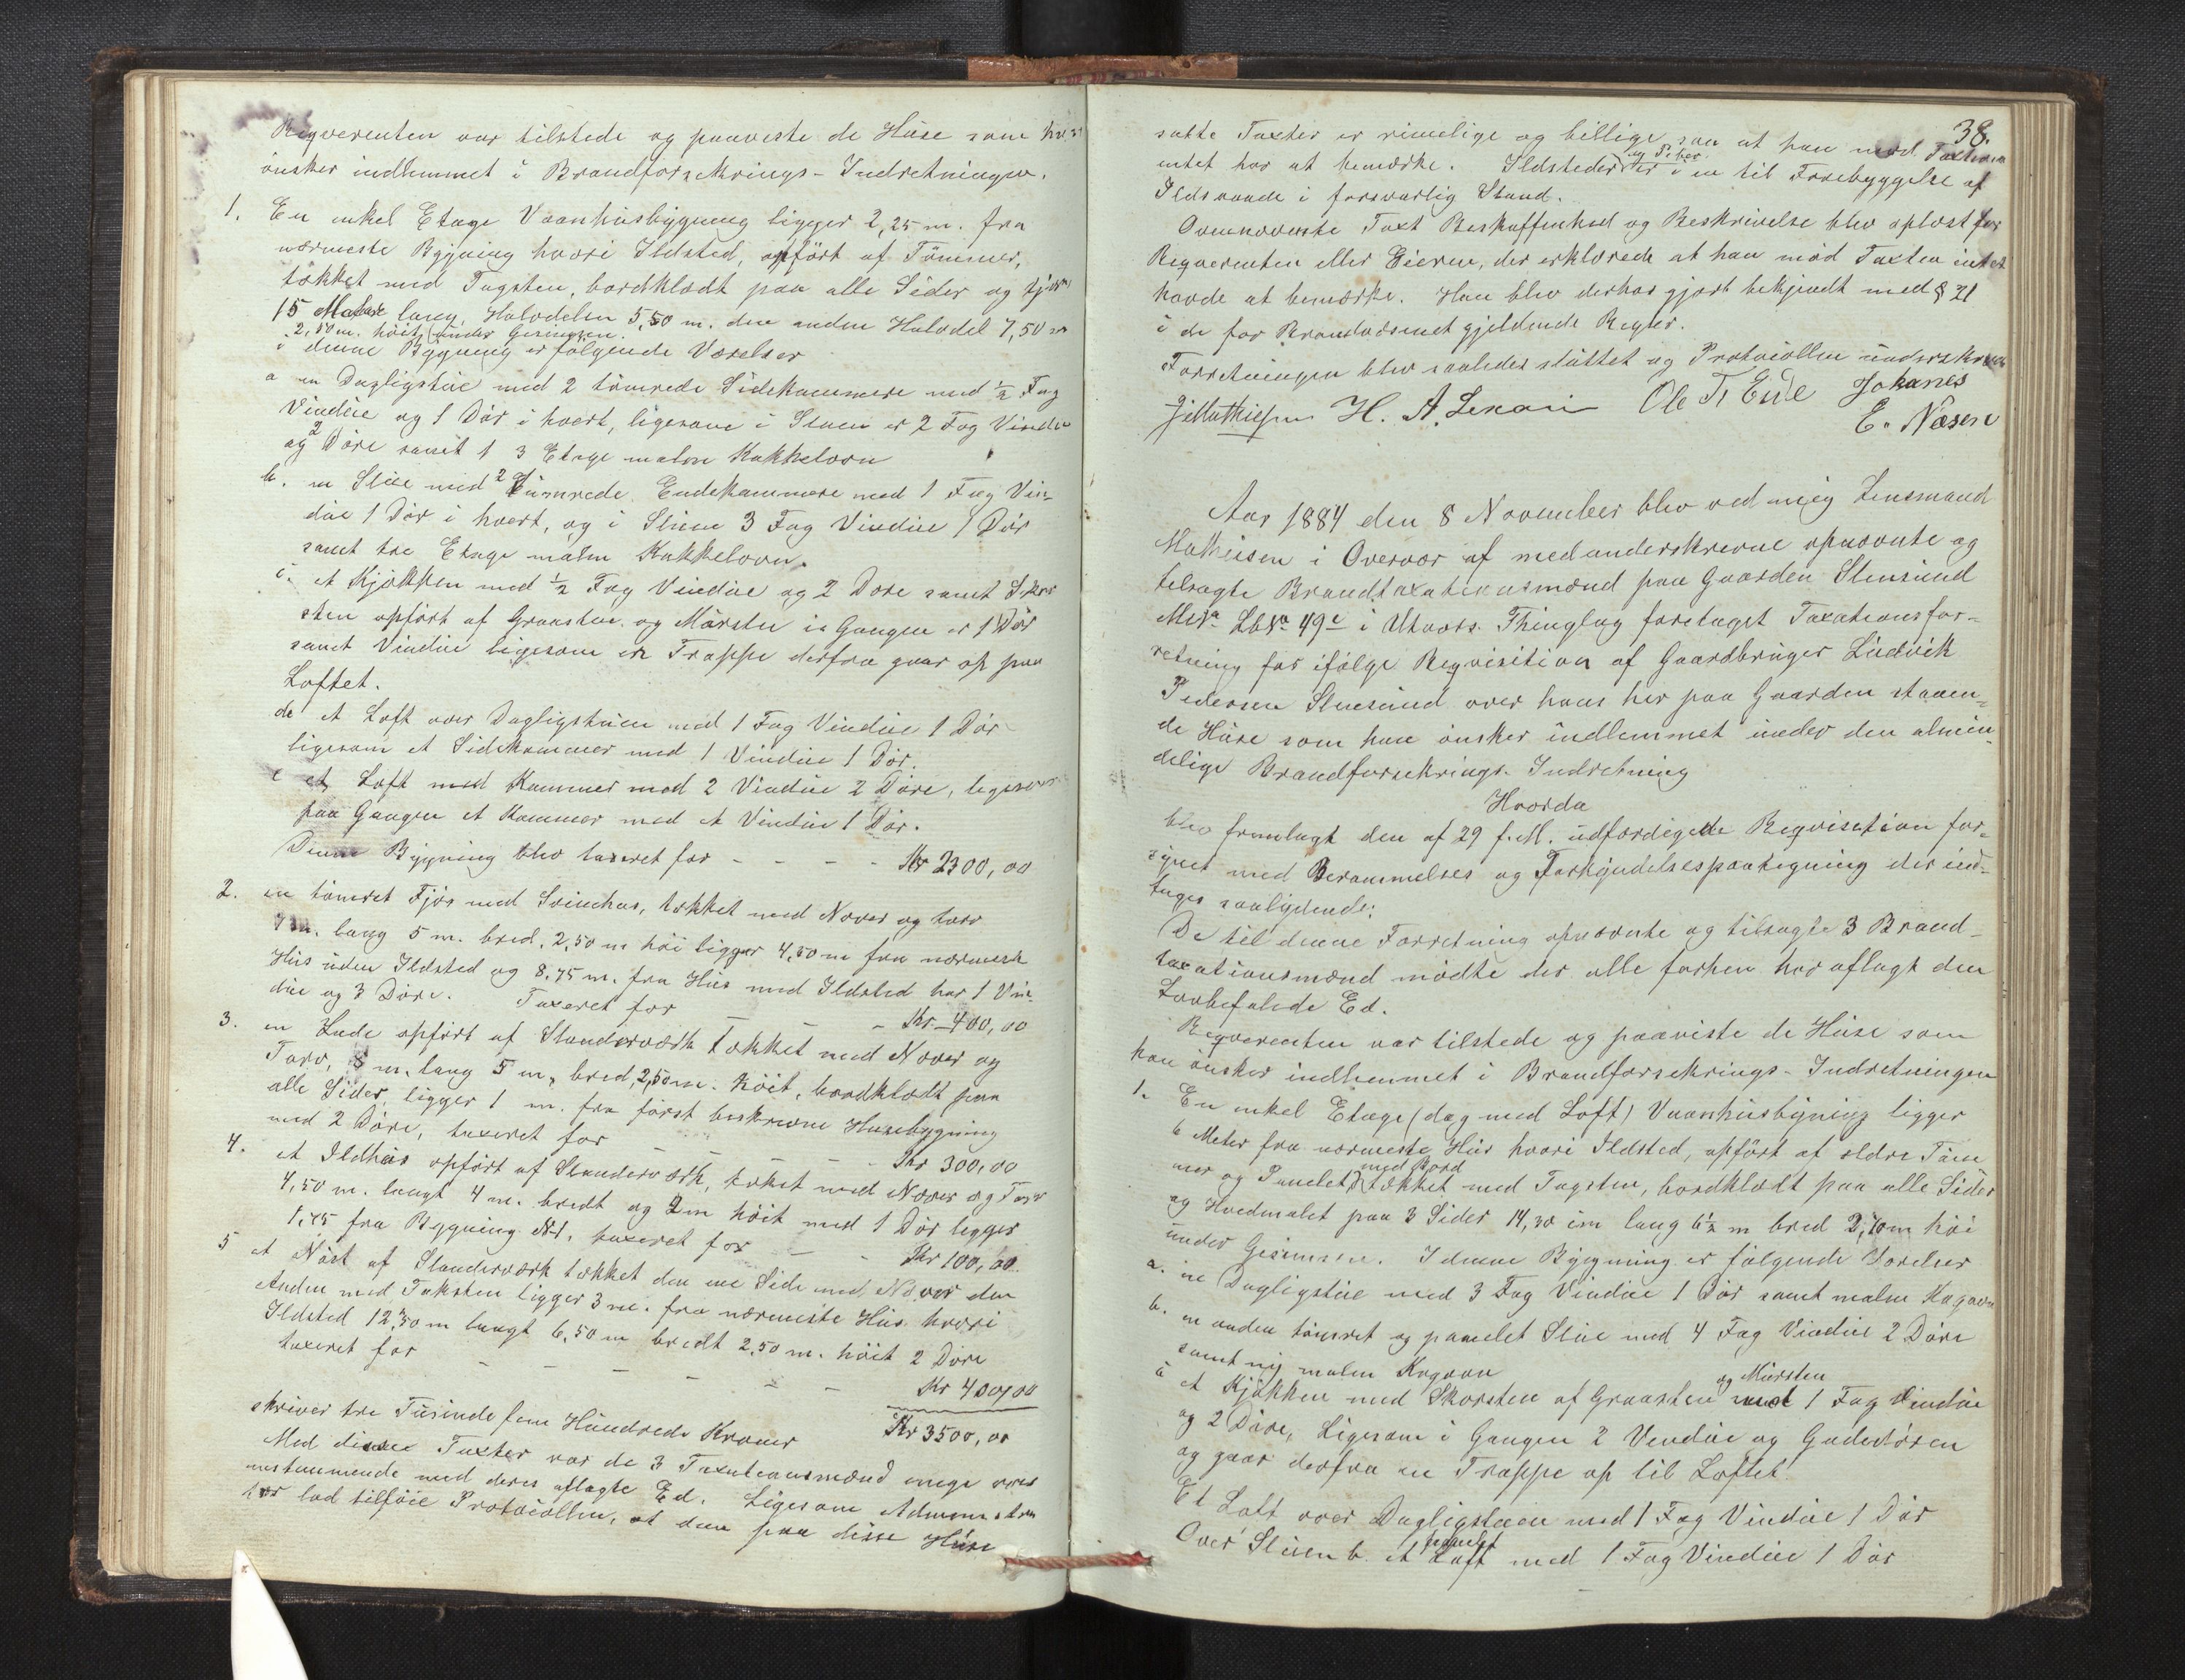 Reqverenten var tilstede og paaviste de Huse som han
ønsker indlemmet i Brandforsekrings-Indretningen.
1. En enkel Etage Vaanhusbygning ligger 2,25 m. fra
nærmeste Bygning hvori Ildsted, opført af Tömmer,
tækket med Tagsten, bordklædt paa alle Sider og
15 Meter lang, Halvdelen 5,50 m. den anden Halvdel 7,50 m
2,50 m. höit under Gesimsen.
i denne Bygning er følgende Værelser
a en Dagligstue med 2 tömrede Sidekammere med ½ Fag
Vindue og 1 Dör i hvert, ligesom i Stuen er 2 Fag Vindue
og 2 Döre samt 1 3 Etage malm Kakkelovn
b. en Stue med 2 tömrede Endekammere med 1 Fag Vin-
due 1 Dör i hvert, og i Stuen 3 Fag Vindue 1 Dör
samt tre Etage malm Kakkelovn.
c. et Kjøkken med ½ Fag Vindue og 2 Döre samt Skor
sten opført af Graasten og Mursten i Gangen er 1 Dör
samt Vindue ligesom en Trappe derfra gaar op paa
Loftet.
d et Loft over Dagligstuen med 1 Fag Vindue 1 Dör
ligesom et Sidekammer med 1 Vindue 1 Dör.
e et Loft med Kammer med 2 Vindue 2 Döre, ligesom
paa Gangen et Kammer med et Vindue 1 Dör.
Denne Bygning blev taxeret for - - - - Kr 2300,00
2. en tömret Fjös med Svinehus, tækket med Næver og torv
9 m. lang 5 m. bred, 2,50 m höi ligger 4,50 m fra nærmeste
Hus uden Ildsted og 8,75 m. fra Hus med Ildsted har 1 Vin-
due og 3 Döre. Taxeret for - - - Kr 400,00
3. en Lade opført af Standerværk tækket med Næver og
Torv, 8 m. lang 5 m. bred, 2,50 m. höit, bordklædt paa
alle Sider, ligger 1 m. fra först beskrevne Husebygning
med 2 Döre, taxeret for - - - Kr 300,00
4. et Ildhus opført af Standerværk, tækket med Næver og Torv
4,50 m. langt 4 m. bredt og 2 m höit med 1 Dör ligger
1,75 fra Bygning No 1, taxeret for - - Kr 100,00
5 et Nöst af Standerværk tækket den ene Side med Næver den
Anden med Taksten ligger 3 m. fra nærmeste Hus hvori
Ildsted 12,50 m langt 6,50 m bredt 2,50 m. höit 2 Döre
taxeret for - - - - - - Kr 400,00
skriver tre Tusinde fem Hundrede Kroner Kr 3500,00
Med disse Taxter var de 3 Taxationsmænd enige over
enstemmende med deres aflagte Ed. Ligesom Administra
tor lod tilföie Protocollen, at den paa disse Huse
38.
satte Taxter er rimelige og billige saa at han mod Taxten
intet har at bemærke. Ildsteder og Piber er i en til Forebyggelse af
Ildsvaade i forsvarlig Stand.
Ovennævnte Taxt Beskaffenhed og Beskrivelse blev oplæst for
Reqverenten eller Eieren, der erklærede at han mod Taxten intet
havde at bemærke. Han blev derhos gjort bekjendt med § 21
i de for Brandvæsenet gjeldende Regler.
Forretningen blev saaledes sluttet og Protocollen underskreven
Mathisen H. A. Ole T. Eide Johanes
E. Næsen
Aar 1884 den 8 November blev ved mig Lensmand
Mathisen i Overvær af medunderskrevne opnævnte og
tilsagte Brandtaxationsmænd paa Gaarden Stensund
Mn Lbn 49c i Utvær Thinglag foretaget Taxationsfor-
retning for ifølge Reqvisition af Gaardbruger Ludvik
Pedersen Stensund over hans her paa Gaarden staaen-
de Huse som han önsker indlemmet under den almin-
delige Brandforsekrings-Indretning
Hvorda
blev fremlagt den af 29 f. M. udfærdigede Reqvisition for-
synet med Berammelses og Forkyndelsespaategning der ind-
tages saalydende:
De til denne Forretning opnævnte og tilsagte 3 Brand-
taxationsmænd mödte der alle forhen har aflagt den
Lovbefalede Ed.
Reqverenten var tilstede og paaviste de Huse som
han önsker indlemmet i Brandforsekrings-Indretningen
1. En enkel Etage (dog med Loft) Vaanhusbyning ligger
6 Meter fra nærmeste Hus hvori Ildsted, opført af ældre Töm
mer og Panelet med Bord tækket med Tagsten, bordklædt paa alle Sider
og Hvedmalet paa 3 Sider 14,30 cm lang 6½ m bred 2,70 m höi
under Gesimsen. I denne Bygning er følgende Værelser
a. en Dagligstue med 3 Fag Vindue 1 Dör samt malm Kogovn
b. en anden tömret og panelet Stue med 4 Fag Vindue 2 Döre
samt ny malm Kogovn
c et Kjøkken med Skorsten af Graasten og Mursten med 1 Fag Vindue
og 2 Döre, Ligesom i Gangen 2 Vendue og Gadedören
og gaar derfra en Trappe op til Loftet.
Et Loft over Dagligstuen med 1 Fag Vindue 1 Dör
Over Stuen b. et panelet Loft med 1 Fag Vindue 1 Dör